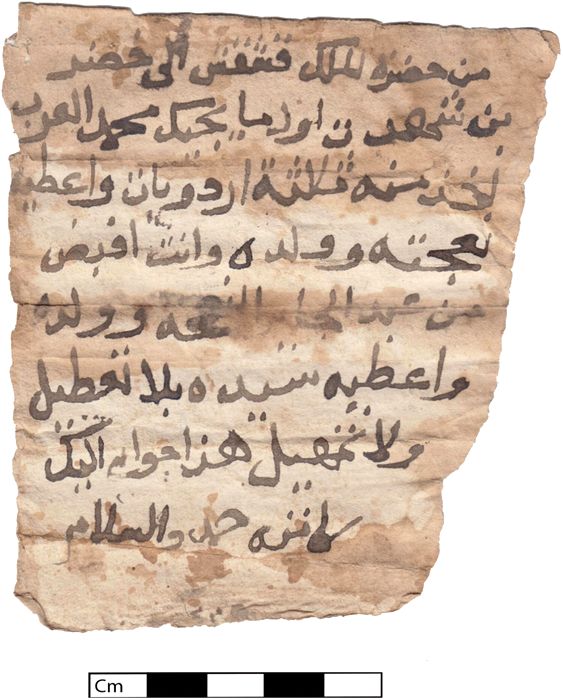 من حضرة الملك قشقش الى خضر
بن شهدت اول ما يجيك محمد العرب
تخذ منه ثلاثة اردويات واعطيه
نعجته وولده وانت اقبض
من عبد الجابر النعجة وولده
واعطيه سيده بلا تعطيل
ولا تمهيل هذا جوابي اليك
لا تزه حد والسلام
Cm